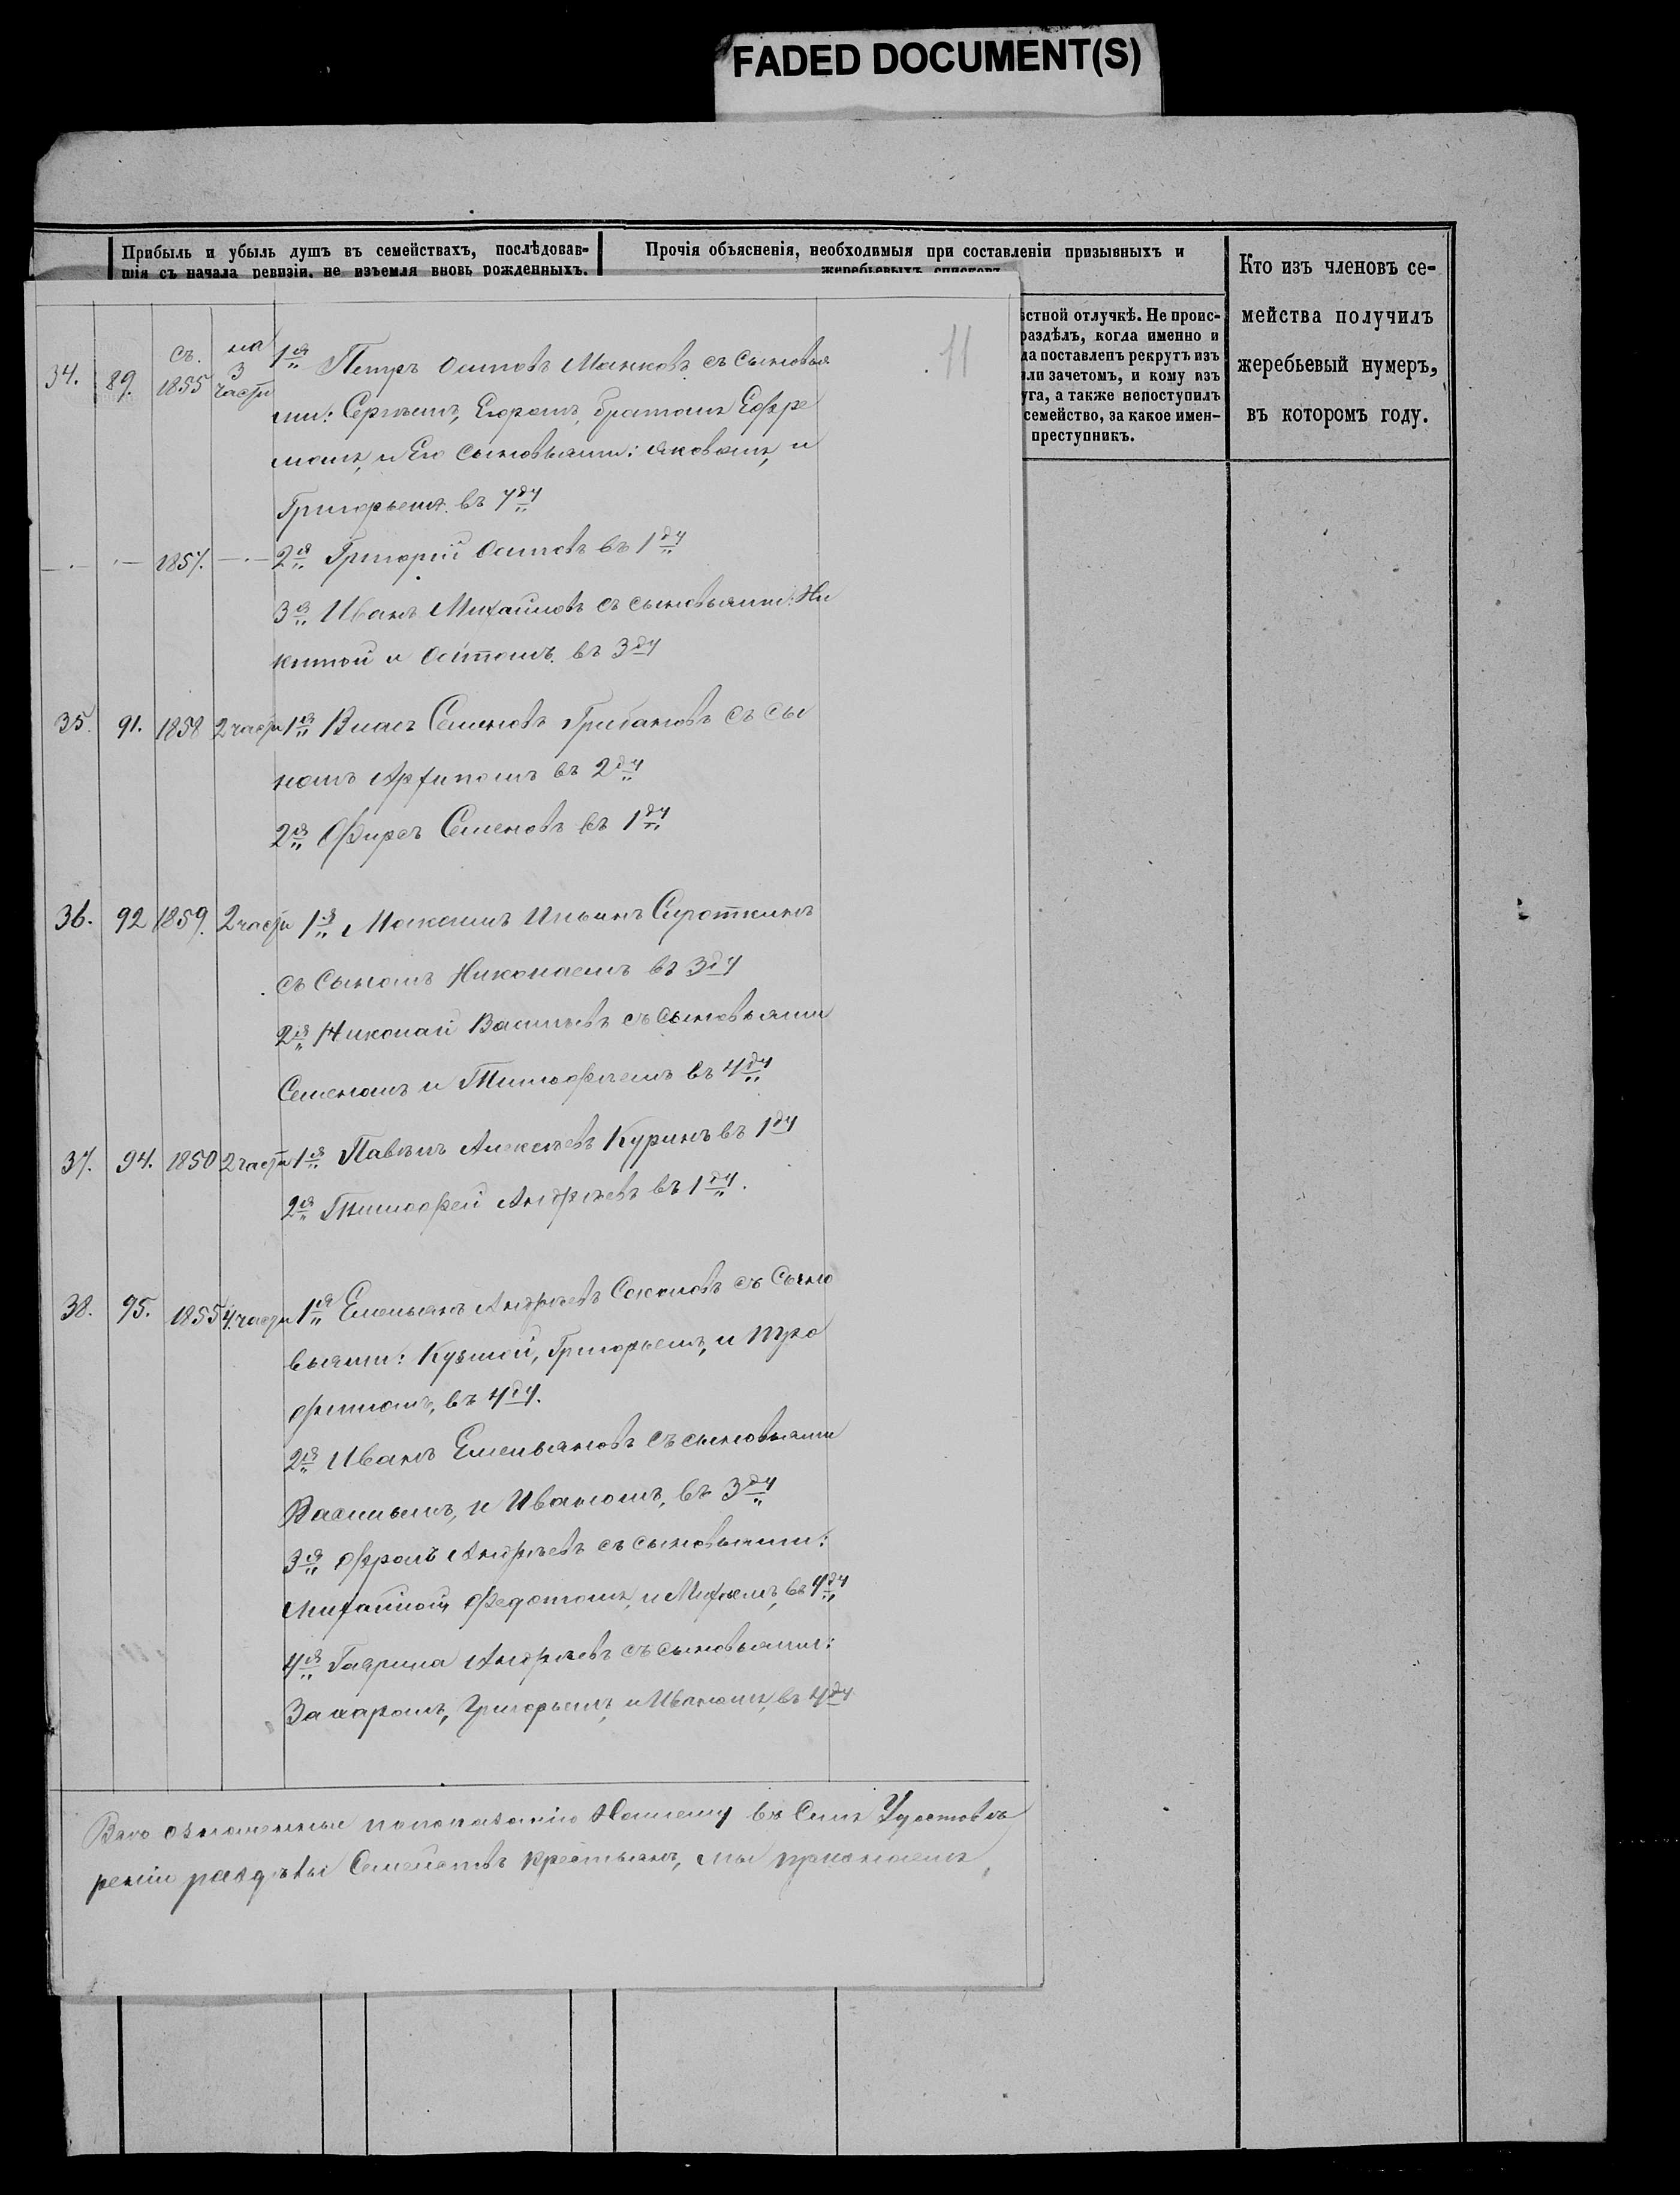 FADED DOCUMENT(S)
Прибыль и убыль душъ въ семействахъ, послѣдовав-
шія съ начала ревизіи, не изъемля вновь рожденныхъ.
Прочія объясненія, необходимыя при составленіи призывныхъ и
жеребьевыхъ списковъ
Кто изъ членовъ се-
мейства получилъ
жеребьевый нумеръ,
въ которомъ году.
стной отлучкѣ. Не проис-
раздѣлъ, когда именно и
да поставленъ рекрутъ изъ
или зачетомъ, и кому изъ
уга, а также непоступилъ
семейство, за какое имен-
преступникъ.
11
34. 89. съ 1855 на 3 части 1я Петръ Осиповъ Манковъ съ сыновья
ми: Сергѣемъ, Егоромъ, братомъ Ефре
момъ, и Его сыновьями: Яковомъ, и
Григорьемъ въ 7ду
1857. 2я Григорій Осиповъ въ 1ду
3я Иванъ Михайловъ съ сыновьями: Ни
китой и Осипомъ въ 3ду
35. 91. 1858 2 части 1я Власъ Семеновъ Грибановъ съ сы
номъ Архипомъ въ 2ду
2я Фирсъ Семеновъ въ 1ду
36. 92 1859. 2 части 1я Максимъ Ильинъ Сироткинъ
съ сыномъ Николаемъ въ 3ду
2я Николай Васильевъ съ сыновьями
Семеномъ и Тимофѣемъ въ 4ду
37. 94. 1850 2 части 1я Павелъ Алексѣевъ Куринъ въ 1ду
2я Тимофей Андрѣевъ въ 1ду.
38. 95. 1855 4 части 1я Емельянъ Андрѣевъ Соколовъ съ Сыно
вьями: Кузмой, Григорьемъ, и Тро
фимомъ, въ 4ду.
2я Иванъ Емельяновъ съ сыновьями
Васильемъ, и Иваномъ, въ 3ду
3я Фролъ Андрѣевъ съ сыновьями:
Михайлой, Федотомъ, и Михѣемъ, въ 4ду
4я Гаврила Андрѣевъ съ сыновьями:
Захаромъ, Григорьемъ, и Иваномъ, въ 4ду
означенные попоказанію Нашему въ Семъ Удостовѣ
реніи раздѣлы Семействъ крестьянъ, мы признаемъ,